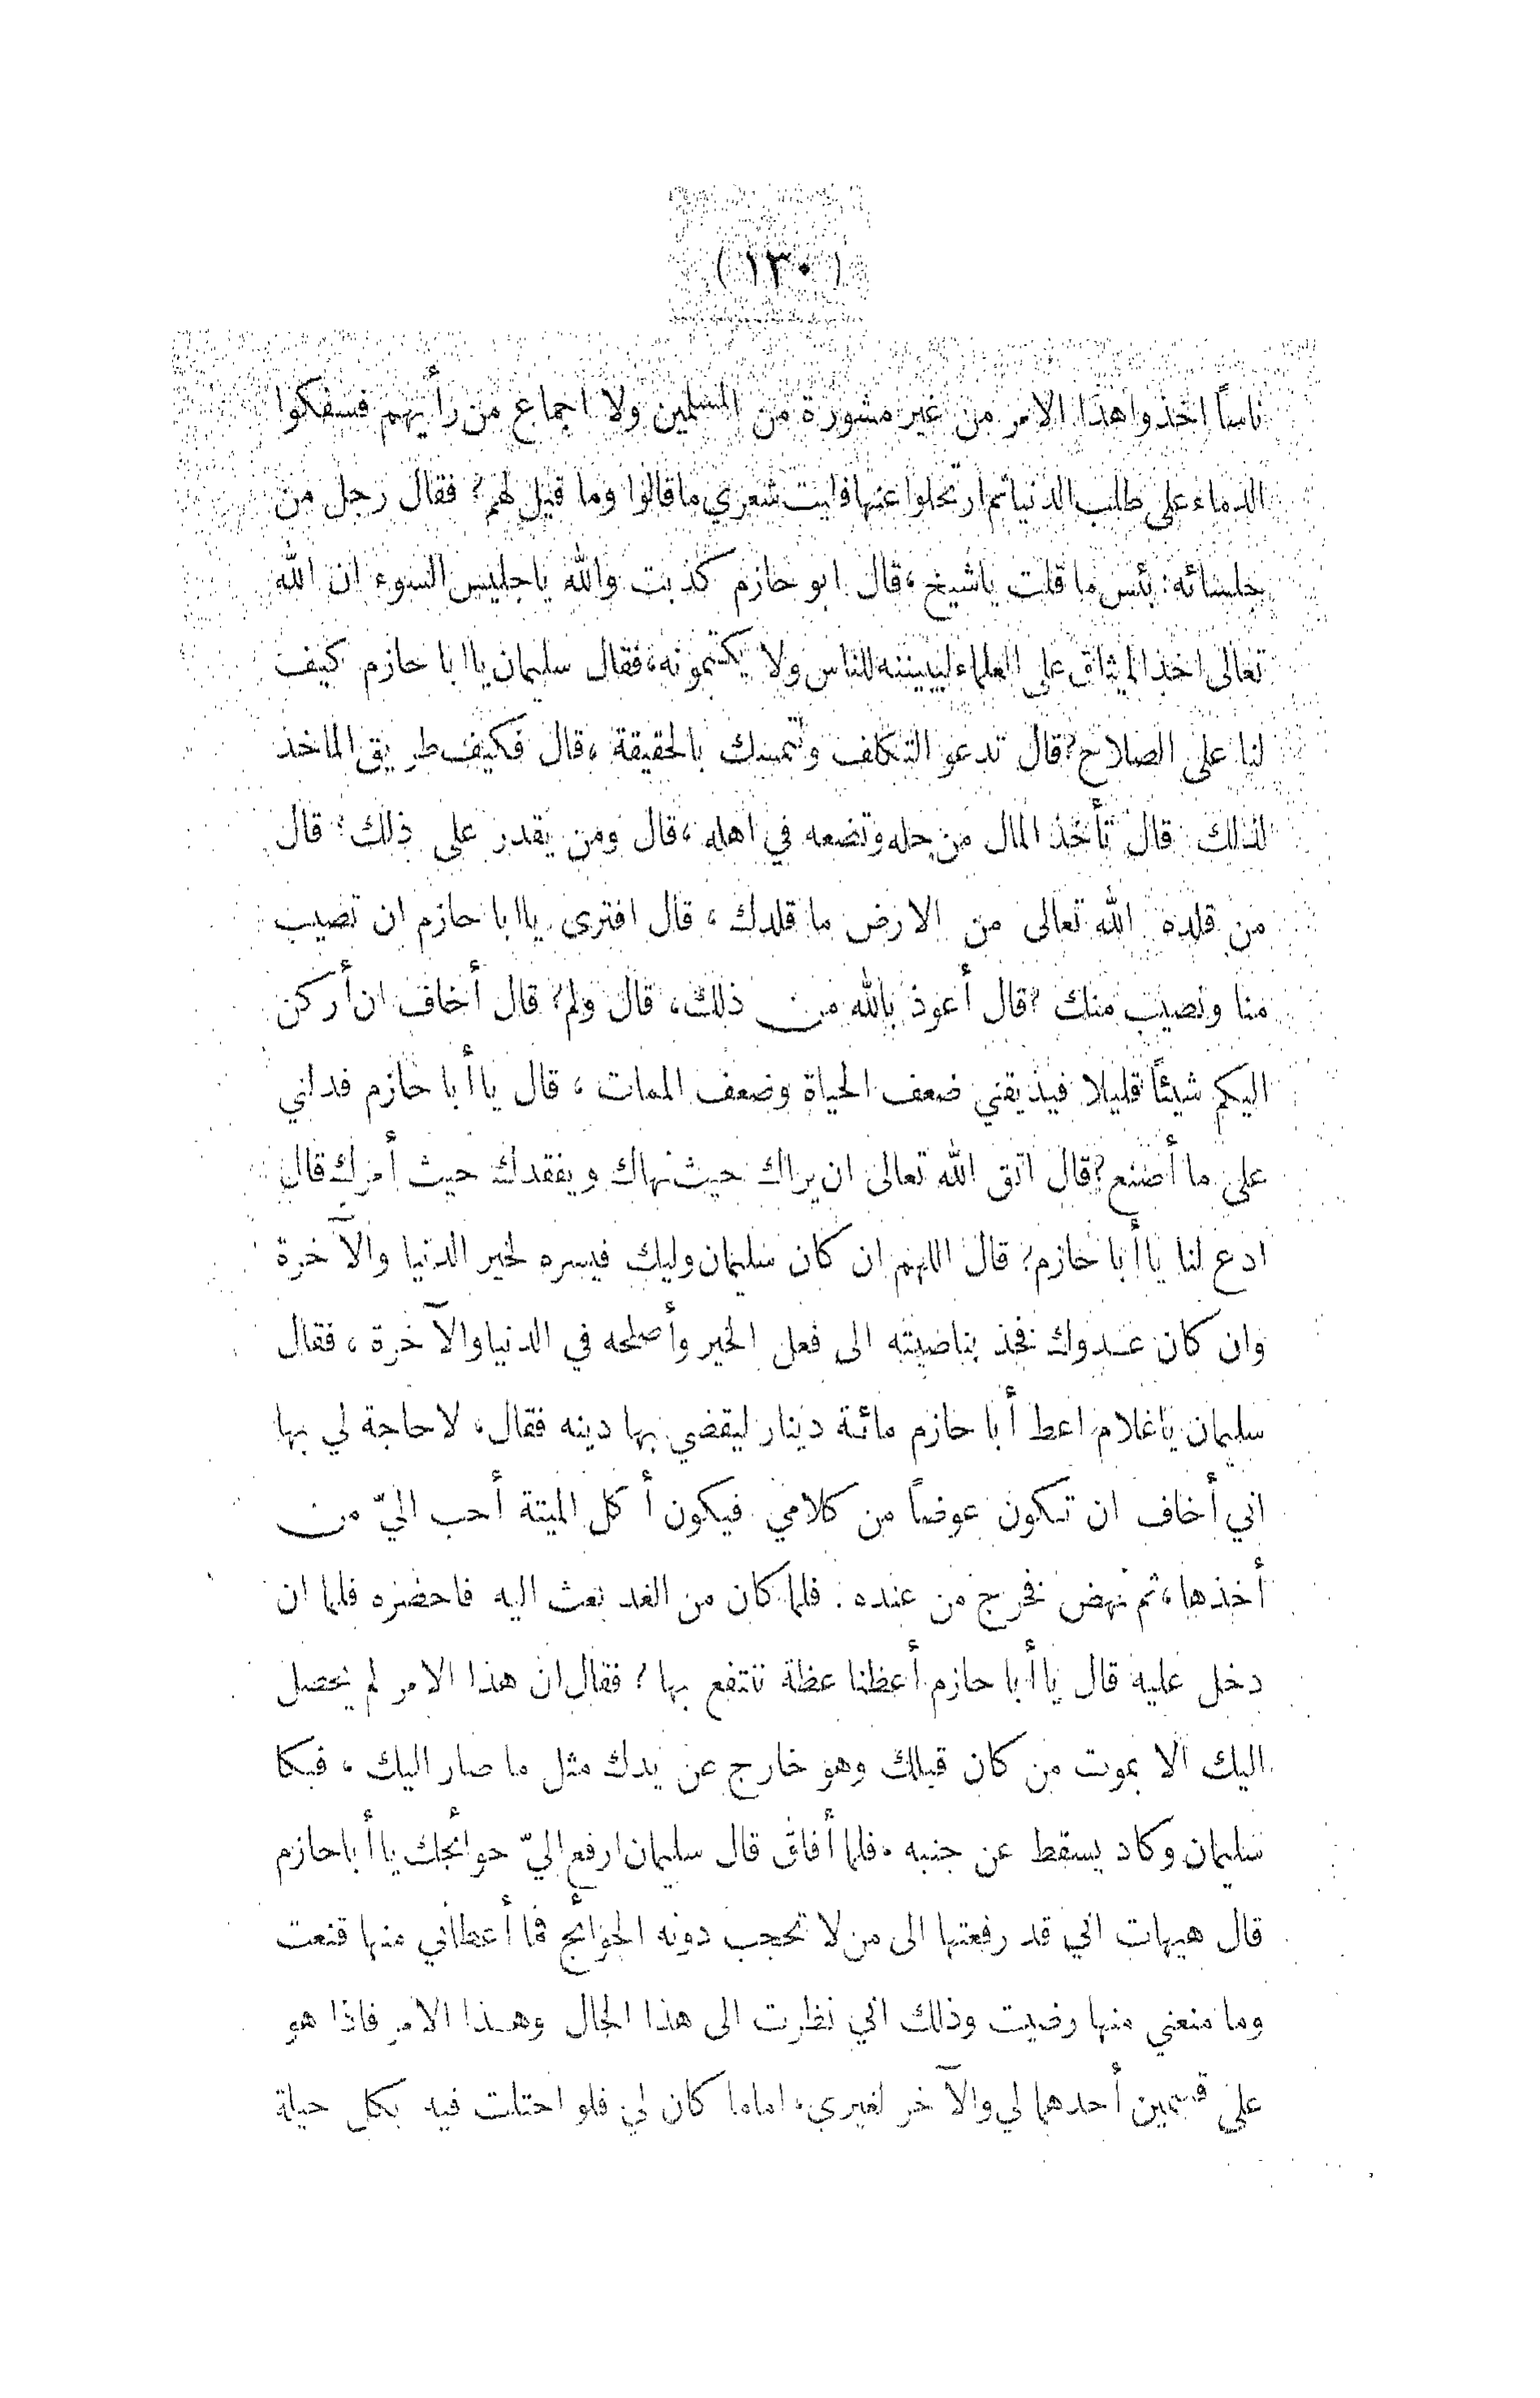 ( ١٣٠ )
ناساً اخذوا هذا الامر من غير مشورة من المسلمين ولا اجماع من رأيهم فسفكوا
الدماء على طلب الدنيا ثم ارتحلوا عنها فليت شعري ما قالوا وما قيل لهم؟ فقال رجل من
جلسائه: بئس ما قلت ياشيخ، قال ابو حازم كذبت والله ياجليس السوء ان الله
تعالى اخذ الميثاق على العلماء ليبيننه للناس ولا يكتمونه، فقال سليمان يا ابا حازم كيف
لنا على الصلاح؟ قال تدعو التكلف وتتمسك بالحقيقة، قال فكيف طريق الماخذ
لذلك قال تأخذ المال من حله وتضعه في اهله، قال ومن يقدر على ذلك؟ قال
من قلده الله تعالى من الارض ما قلدك، قال افترى يا ابا حازم ان تصيب
منا ونصيب منك؟ قال أعوذ بالله من ذلك، قال ولم؟ قال أخاف ان أركن
اليكم شيئاً قليلا فيذيقني ضعف الحياة وضعف الممات، قال يا أبا حازم فدلني
على ما أصنع؟ قال اتق الله تعالى ان يراك حيث نهاك ويفقدك حيث أمرك قال
ادع لنا يا أبا حازم؟ قال اللهم ان كان سليمان وليك فيسره لخير الدنيا والآخرة
وان كان عدوك فخذ بناصيته الى فعل الخير وأصلحه في الدنيا والآخرة، فقال
سليمان ياغلام اعط أبا حازم مائة دينار ليقضي بها دينه فقال، لا حاجة لي بها
اني أخاف ان تكون عوضاً من كلامي فيكون أكل الميتة أحب اليّ من
أخذها، ثم نهض فخرج من عنده. فلما كان من الغد بعث اليه فاحضره فلما ان
دخل عليه قال يا أبا حازم أعظنا عظة ننتفع بها؟ فقال ان هذا الامر لم يحصل
اليك الا بموت من كان قبلك وهو خارج عن يدك مثل ما صار اليك، فبكا
سليمان وكاد يسقط عن جنبه، فلما أفاق قال سليمان ارفع اليّ حوائجك يا أبا حازم
قال هيهات اني قد رفعتها الى من لا تحجب دونه الحوائج فما أعطاني منها قنعت
وما منعني منها رضيت وذلك اني نظرت الى هذا الحال وهذا الامر فاذا هو
على قسمين أحدهما لي والآخر لغيري، اما ما كان لي فلو احتلت فيه بكل حيلة